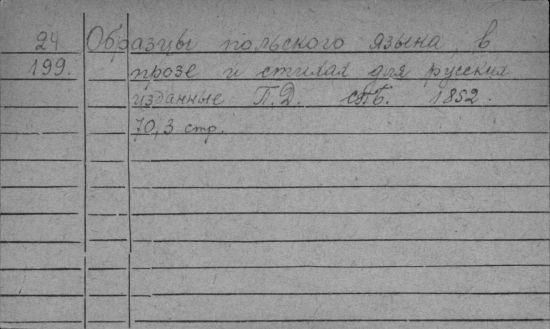 24 Образцы польского языка в
199. прозе и стихах для русских
изданные П. Д. СПБ. 1852.
70,3 стр.